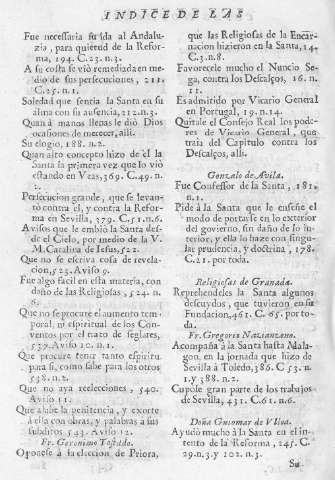 INDICE DE LAS
Fue necessaria su ida al Andaluzia
zia, para quietud de la Reforma
ma, 194. C.23. n.3.
A su costa se viò remediada en medio
dio de sus persecuciones, 211.
C.25. n.1.
Soledad que sentia la Santa en su
alma con su ausencia, 212. n.3.
Quan à manos llenas le diò Dios
ocasiones de merecer, alli.
Su elogio, 188. n.2.
Quan alto concepto hizo de èl la
Santa la primera vez que lo viò
estando en Veas, 369. C.49. n.
2.
Persecucion grande, que se levantò
tò contra èl, y contra la Reforma
ma en Sevilla, 379. C.51. n.6.
Avisos que le embiò la Santa desde
de el Cielo, por medio de la V.
M. Catalina de Jesus, 522.
Que no se escriva cosa de revelacion,
cion, 523. Aviso 9.
Fue algo facil en esta materia, con
daño de las Religiosas, 524. n.
6.
Que no se procure el aumento temporal,
poral, ni espiritual de los Conventos
ventos por el trato de seglares,
537. Aviso 10. n.1.
Que procure tener tanto espiritu
para si, como sabe para los otros
538. n.2.
Que no aya reelecciones, 540.
Aviso 11.
Que alabe la penitencia, y exorte
à ella con obras, y palabras à sus
subditos 543. Aviso 12.
Fr. Geronimo Tostado.
Oponese à la eleccion de Priora,
que las Religiosas de la Encarnacion
nacion hizieron en la Santa, 14.
C.3. n.8.
Favorecele mucho el Nuncio Sega,
ga, contra los Descalços, 16. n.
11.
Es admitido por Vicario General
en Portugal, 19. n.14.
Quitale el Consejo Real los poderes
res de Vicario General, que
traia del Capitulo contra los
Descalços, alli.
Gonzalo de Avila.
Fue Confessor de la Santa, 181.
n.1.
Pide à la Santa que le enseñe el
modo de portarse en lo exterior
del govierno, sin daño de lo interior,
terior, y ella lo haze con singular
lar prudencia, y doctrina, 178.
C.21. por toda.
Religiosas de Granada.
Reprehendeles la Santa algunos
descuydos, que tuvieron en su
Fundacion, 461. C.65. por toda.
da.
Fr. Gregorio Nazianzeno.
Acompaña à la Santa hasta Malagon,
gon, en la jornada que hizo de
Sevilla à Toledo, 386. C 53. n.
1. y 388. n.2.
Cupole gran parte de los trabajos
de Sevilla, 431. C.61. n.6.
Doña Guiomar de Vlloa.
Ayudò mucho à la Santa en el intento
tento de la Reforma, 245. C.
29. n.3. y 202. n.3.
Su